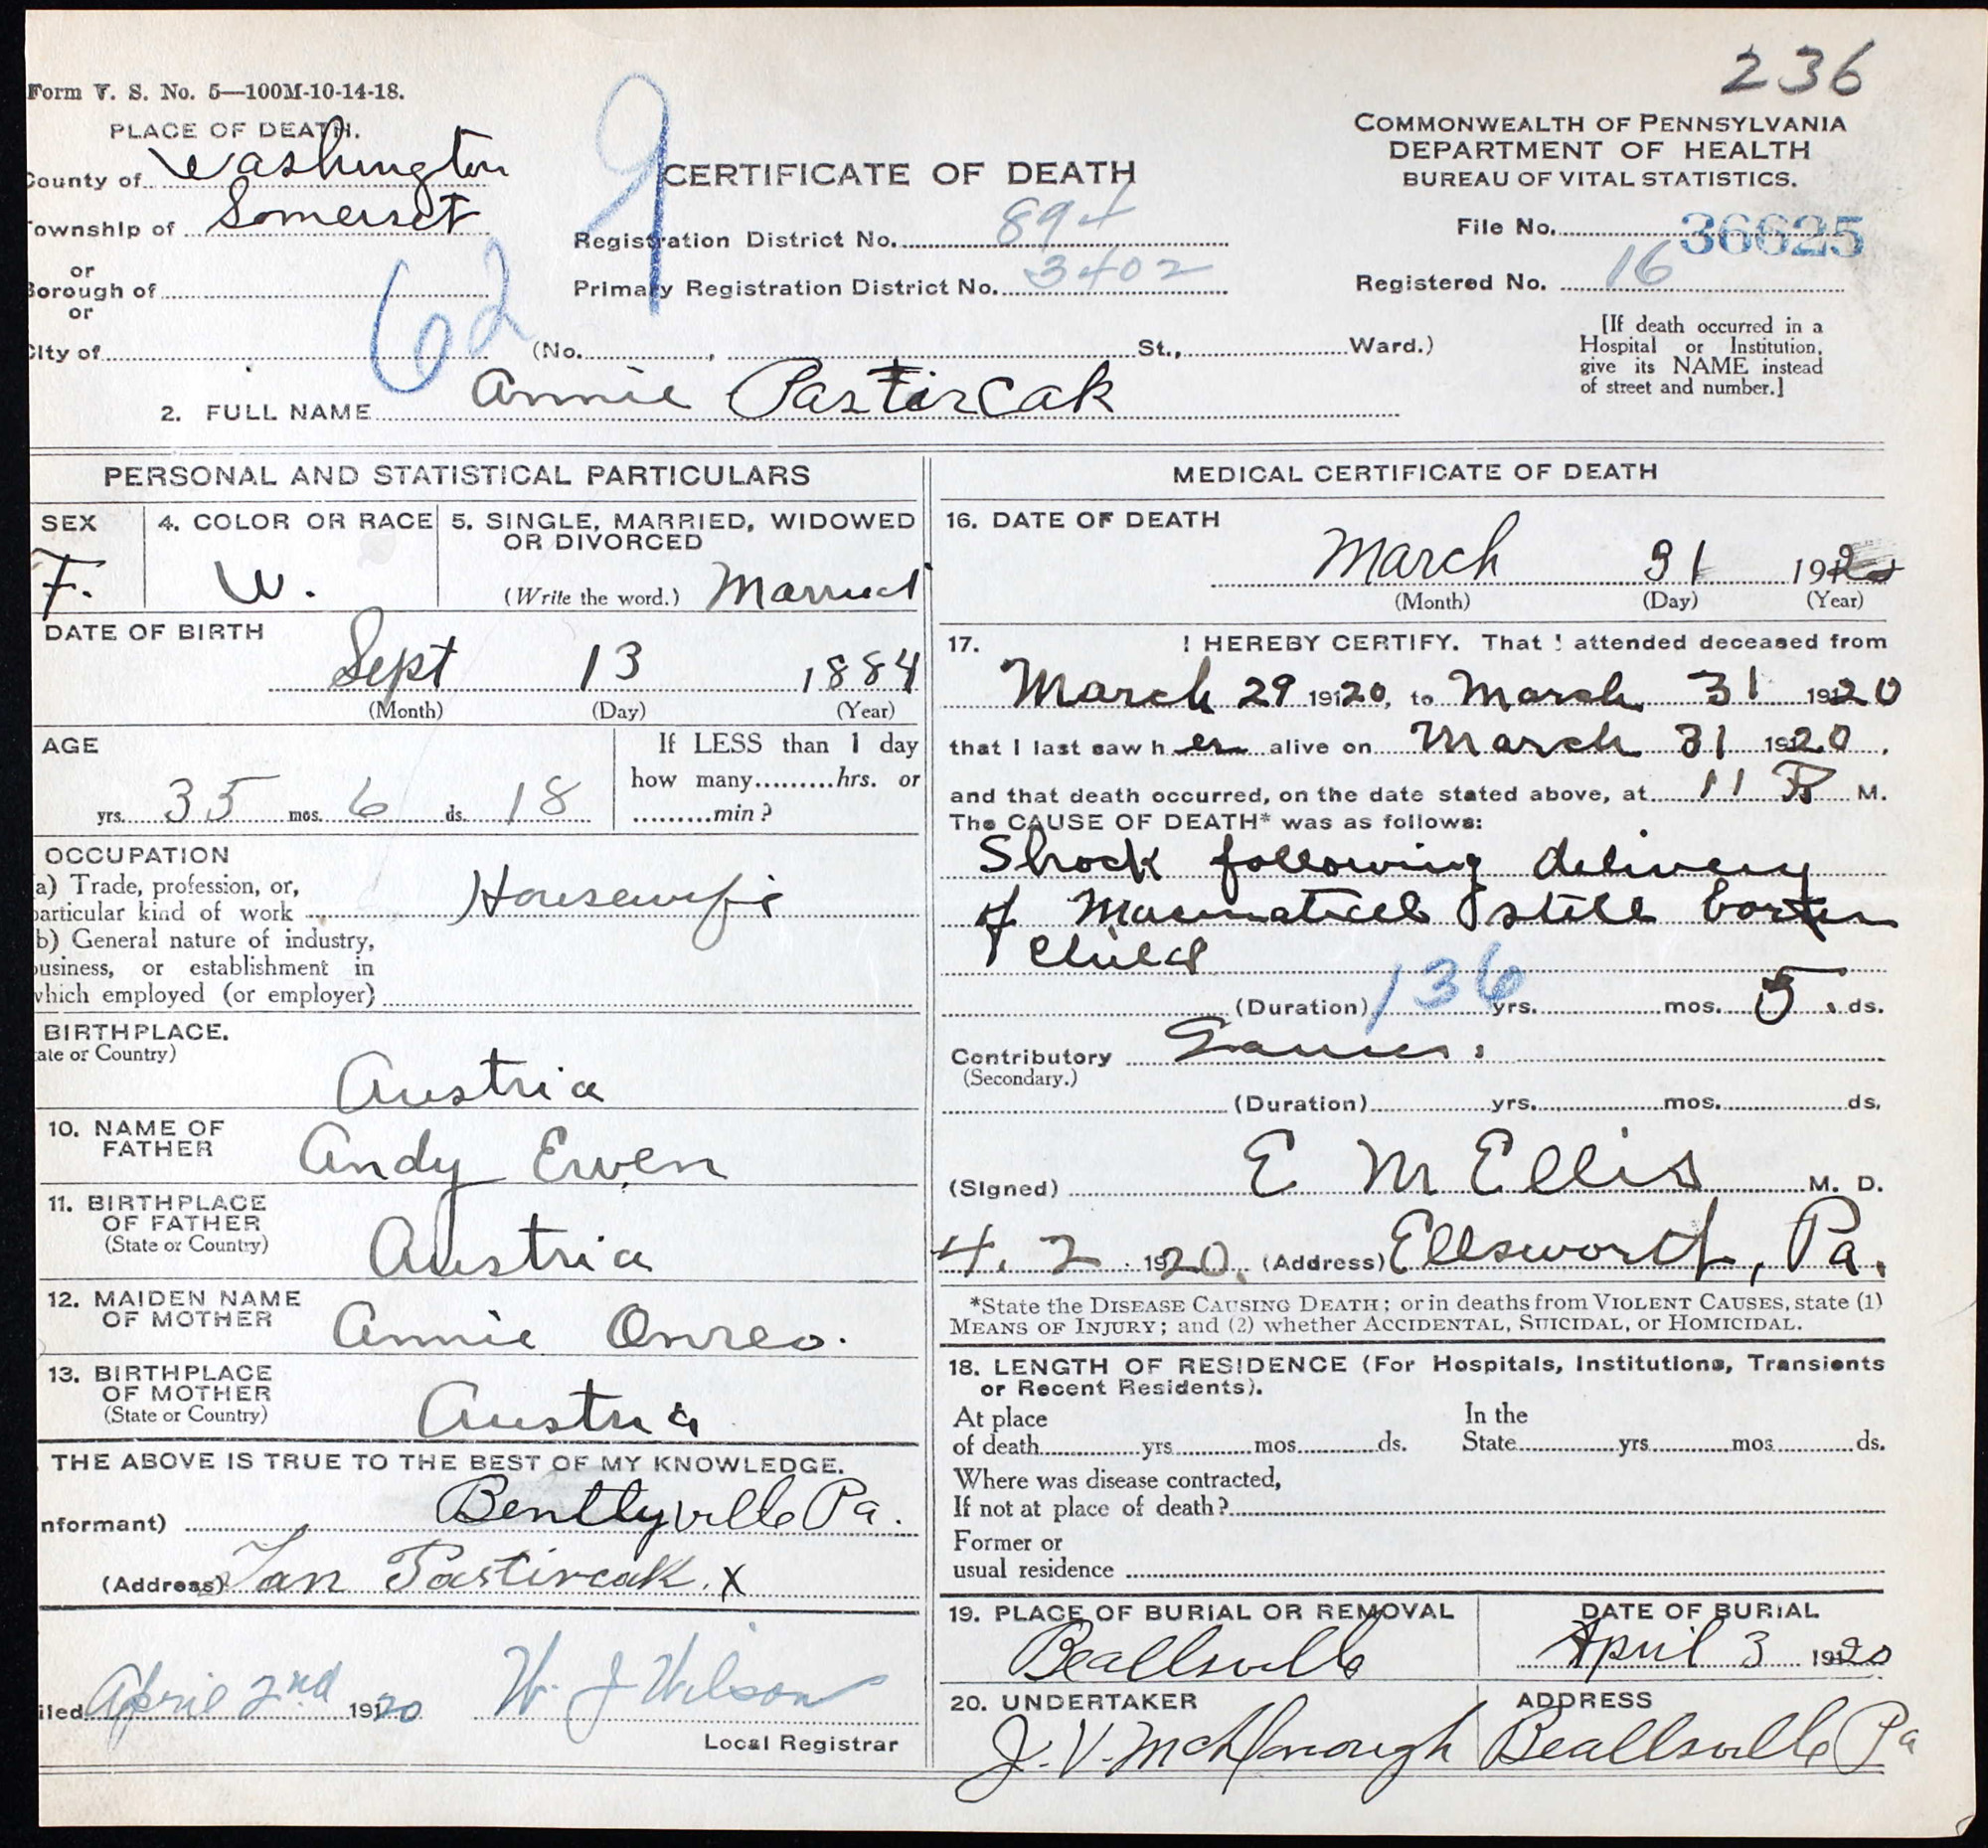 236
Form V. S. No. 5—100M-10-14-18.
PLACE OF DEATH.
County of Washington
Township of Somerset
or
Borough of
or
City of
62
9
CERTIFICATE OF DEATH
Registration District No. 894
Primary Registration District No. 3402
(No. , St., Ward.)
COMMONWEALTH OF PENNSYLVANIA
DEPARTMENT OF HEALTH
BUREAU OF VITAL STATISTICS.
File No. 36625
Registered No. 16
[If death occurred in a
Hospital or Institution,
give its NAME instead
of street and number.]
2. FULL NAME Annie Pastircak
PERSONAL AND STATISTICAL PARTICULARS
SEX
F.
4. COLOR OR RACE
W.
5. SINGLE, MARRIED, WIDOWED
OR DIVORCED
(Write the word.) Married
DATE OF BIRTH
Sept 13 1884
(Month) (Day) (Year)
AGE
yrs. 35 mos. 6 ds. 18
If LESS than 1 day
how many.........hrs. or
.........min?
OCCUPATION
a) Trade, profession, or,
particular kind of work Housewife
b) General nature of industry,
business, or establishment in
which employed (or employer)
BIRTHPLACE.
ate or Country)
Austria
10. NAME OF
FATHER
Andy Erven
11. BIRTHPLACE
OF FATHER
(State or Country)
Austria
12. MAIDEN NAME
OF MOTHER
Annie Onreo.
13. BIRTHPLACE
OF MOTHER
(State or Country)
Austria
THE ABOVE IS TRUE TO THE BEST OF MY KNOWLEDGE.
nformant) Bentlyville Pa.
(Address) Jan Pastircak. X
iled April 2nd 1920 W. J Wilson
Local Registrar
MEDICAL CERTIFICATE OF DEATH
16. DATE OF DEATH
March 31 19
(Month) (Day) (Year)
17. I HEREBY CERTIFY. That I attended deceased from
March 29 1920, to March 31 1920
that I last saw her alive on March 31 1920,
and that death occurred, on the date stated above, at 11 P M.
The CAUSE OF DEATH* was as follows:
Shock following delivery
of still born
child
136
(Duration) yrs. mos. 5 ds.
Contributory
(Secondary.)
(Duration) yrs. mos. ds.
(Signed) E M Ellis M. D.
4. 2. 1920. (Address) Ellsworth, Pa.
*State the DISEASE CAUSING DEATH; or in deaths from VIOLENT CAUSES, state (1)
MEANS OF INJURY; and (2) whether ACCIDENTAL, SUICIDAL, or HOMICIDAL.
18. LENGTH OF RESIDENCE (For Hospitals, Institutions, Transients
or Recent Residents).
At place
of death yrs mos ds.
In the
State yrs mos ds.
Where was disease contracted,
If not at place of death?
Former or
usual residence
19. PLACE OF BURIAL OR REMOVAL
Beallsville
DATE OF BURIAL
April 3 1920
20. UNDERTAKER
J. V. McDonough
ADDRESS
Beallsville Pa